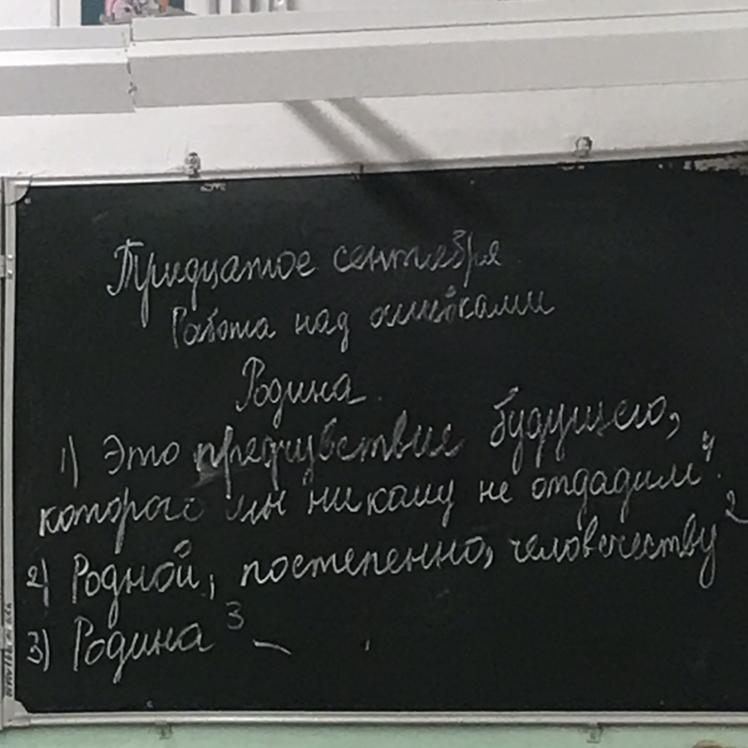 Тридцатое сентября
Работа над ошибками
Родина.
1) Это предчувствие будущего,
которого мы никому не отдадим"⁴.
2) Родной, постепенно, человечеству²
3) Родина³ –